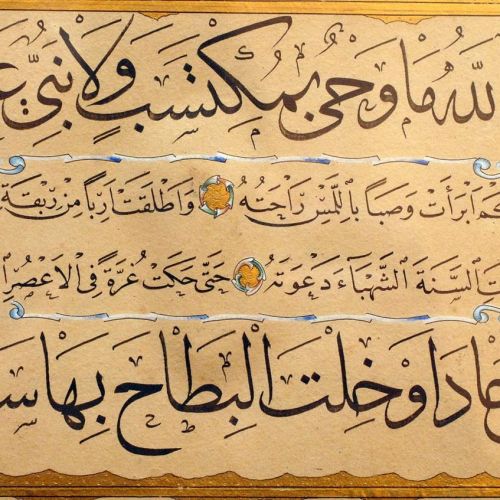 اللّٰهُ مَا وَحْيٌ بِمُكْتَسَبٍ وَلَا نَبِيٌّ
اَبْرَأَتْ وَصِباً بِاللَّمْسِ رَاحَتُهُ وَاَطْلَقَتْ اَرِباً مِنْ رِبْقَةِ
السَّنَةَ الشَّهْبَاءَ دَعْوَتُهُ حَتّٰى حَكَتْ غُرَّةً فِي الْاَعْصُرِ
جَادَ اَوْ خِلْتَ الْبِطَاحَ بِهَا